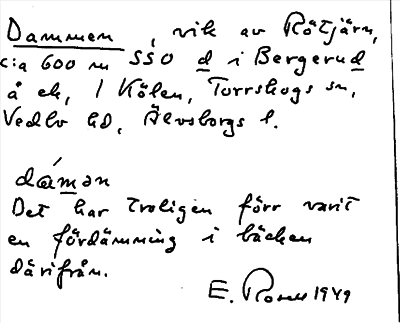 Dammen, vik av Rötjärn,
c:a 600 m SSO d i Bergerud
å ek, i Kölen, Torrskogs sn,
Vedbo hd, Älvsborgs l.
dámən
Det har troligen förr varit
en fördämning i bäcken
därifrån.
E. Rosell 1949